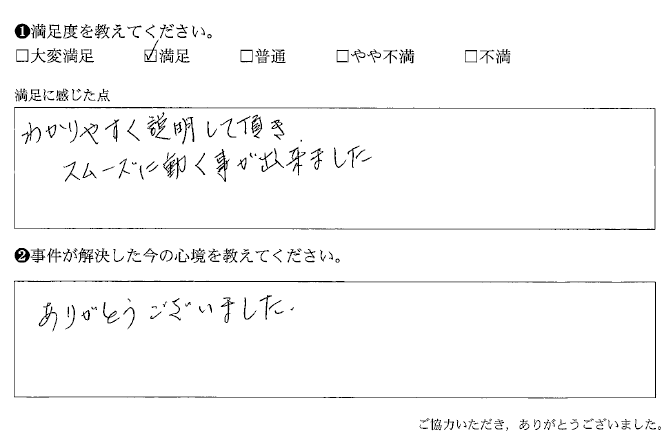 ❶満足度を教えてください。
□大変満足 ☑満足 □普通 □やや不満 □不満
満足に感じた点
わかりやすく説明して頂き
スムーズに動く事が出来ました
❷事件が解決した今の心境を教えてください。
ありがとうございました.
ご協力いただき，ありがとうございました。